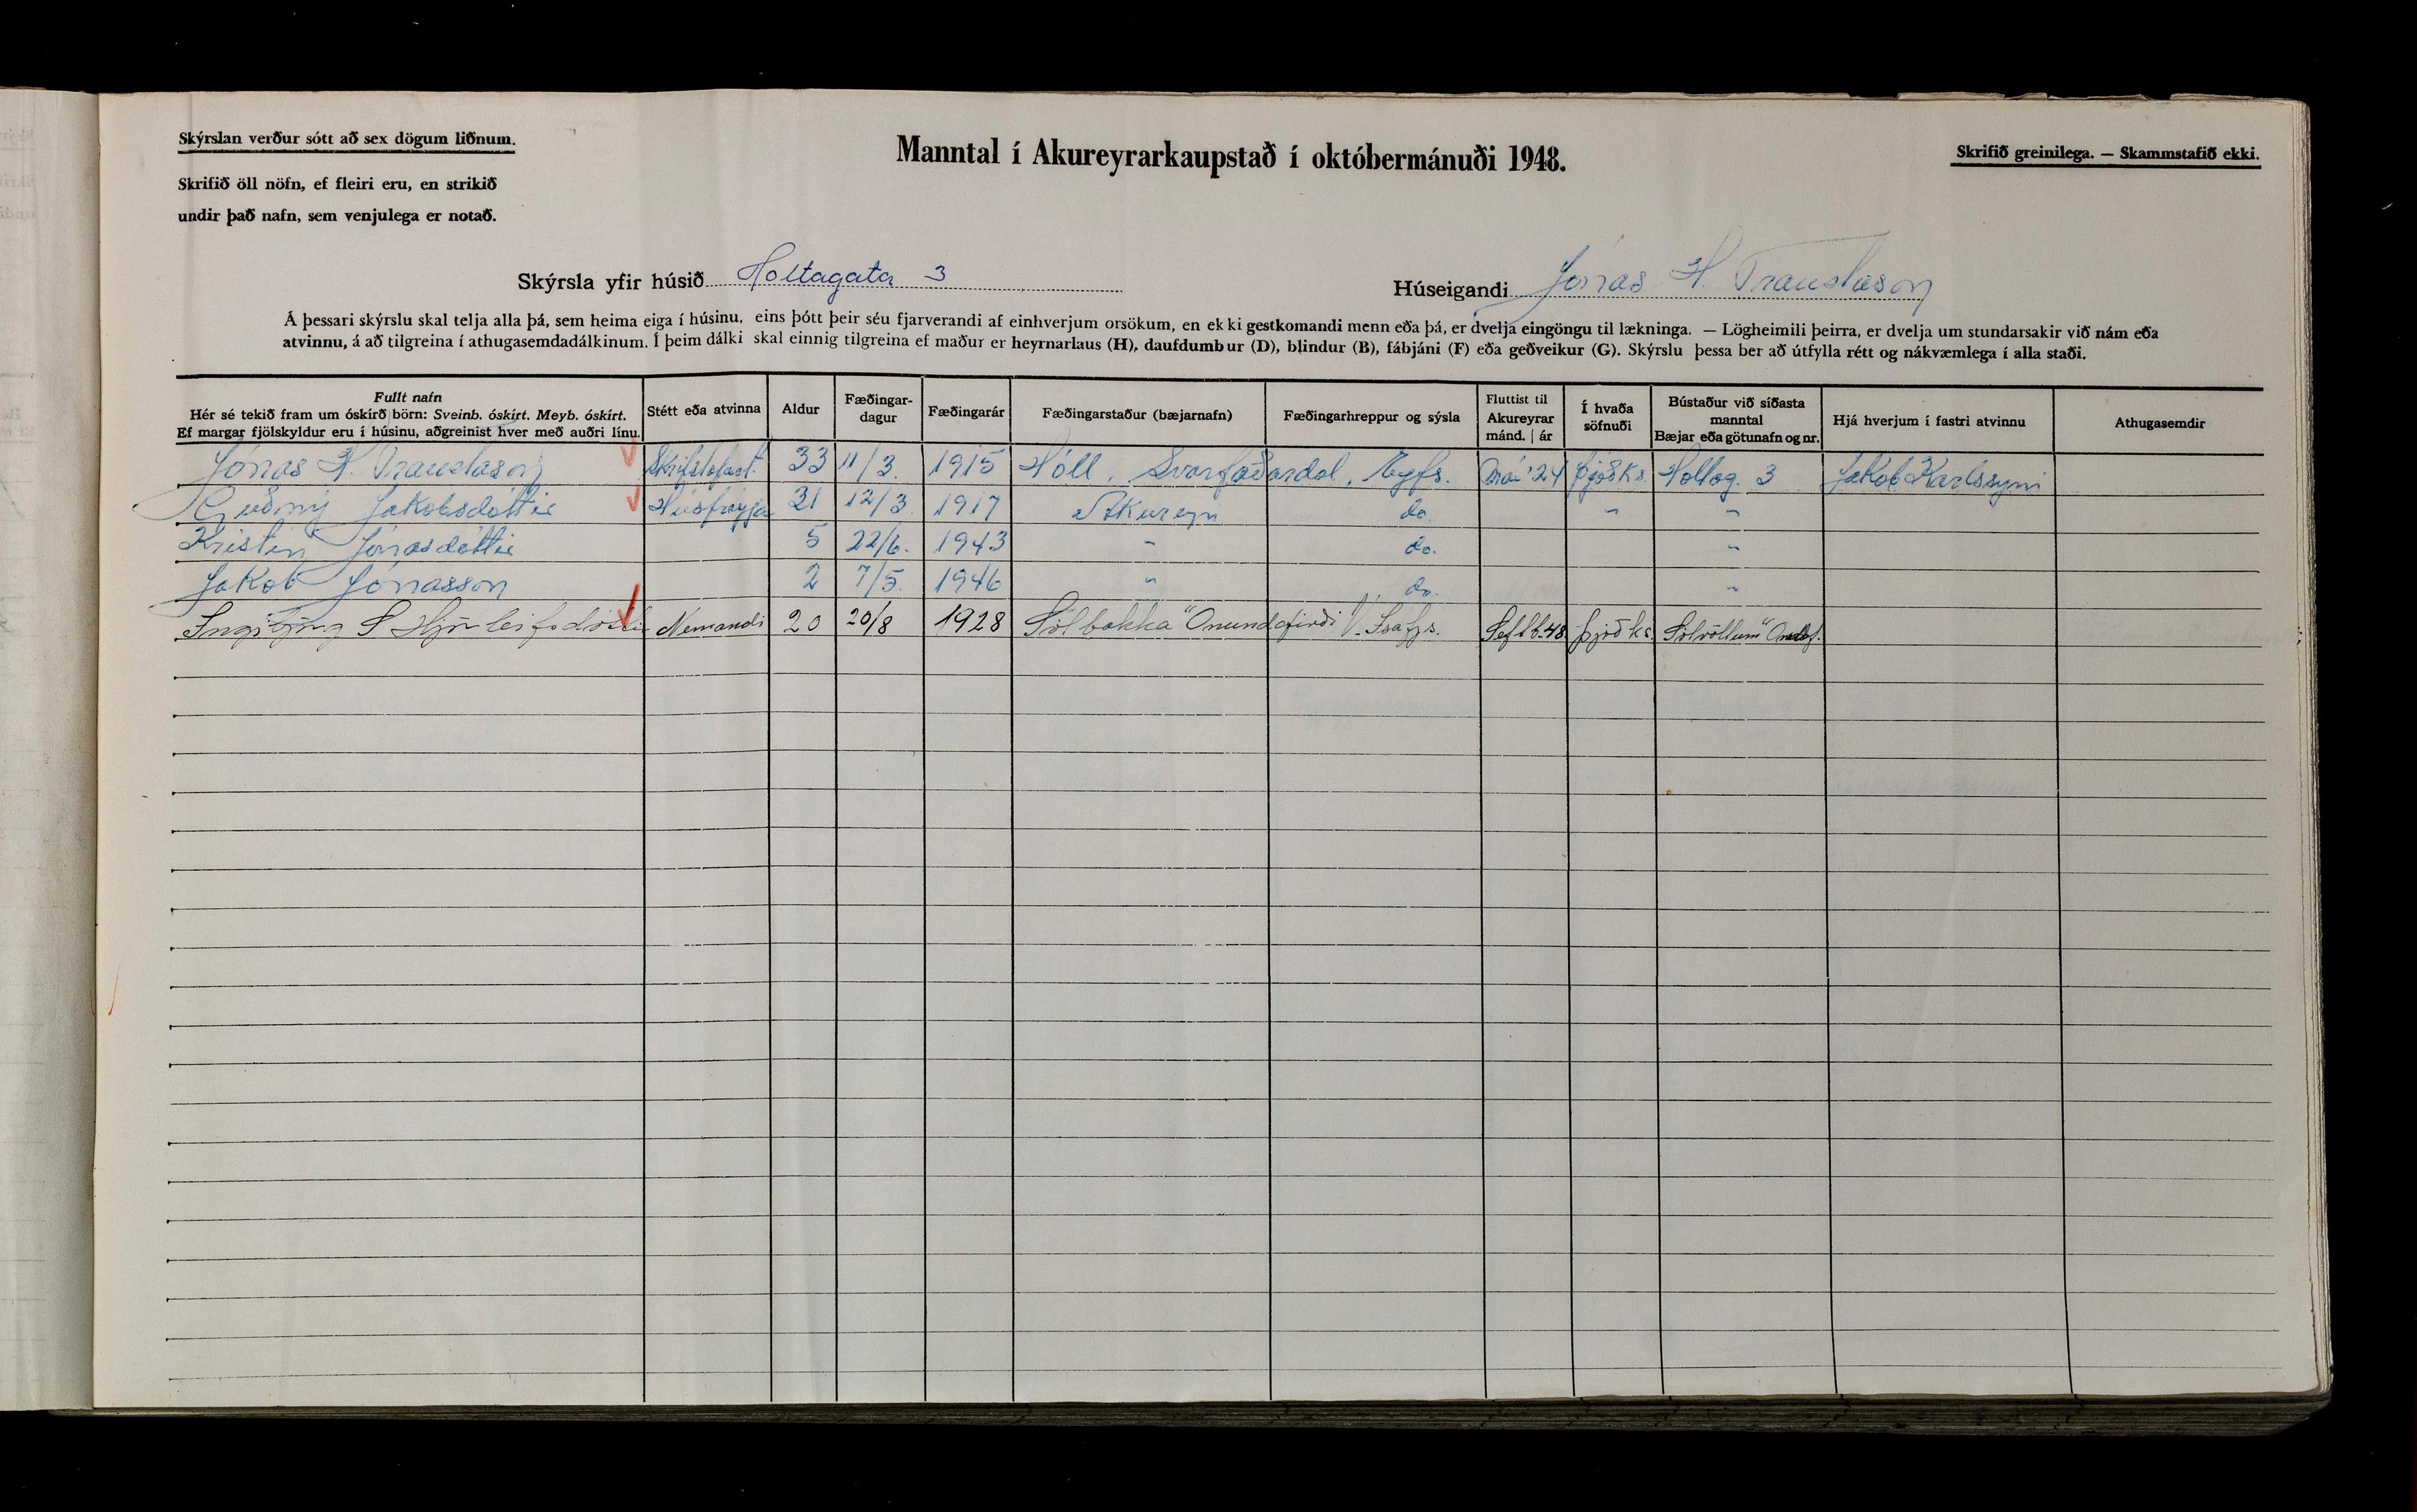 Skýrslan verður sótt að sex dögum liðnum.
Skrifið öll nöfn, ef fleiri eru, en strikið
undir það nafn, sem venjulega er notað.
Manntal í Akureyrarkaupstað í októbermánuði 1948.
Skrifið greinilega. — Skammstafið ekki.
Skýrsla yfir húsið Holtagata 3
Húseigandi Jónas H. Traustason
Á þessari skýrslu skal telja alla þá, sem heima eiga í húsinu, eins þótt þeir séu fjarverandi af einhverjum orsökum, en ekki gestkomandi menn eða þá, er dvelja eingöngu til lækninga. — Lögheimili þeirra, er dvelja um stundarsakir við nám eða
atvinnu, á að tilgreina í athugasemdadálkinum. Í þeim dálki skal einnig tilgreina ef maður er heyrnarlaus (H), daufdumbur (D), blindur (B), fábjáni (F) eða geðveikur (G). Skýrslu þessa ber að útfylla rétt og nákvæmlega í alla staði.
Fullt nafn
Hér sé tekið fram um óskírð börn: Sveinb. óskírt. Meyb. óskírt.
Ef margar fjölskyldur eru í húsinu, aðgreinist hver með auðri línu.
Stétt eða atvinna
Aldur
Fæðingar-
dagur
Fæðingarár
Fæðingarstaður (bæjarnafn)
Fæðingarhreppur og sýsla
Fluttist til
Akureyrar
mánd. | ár
Í hvaða
söfnuði
Bústaður við síðasta
manntal
Bæjar eða götunafn og nr.
Hjá hverjum í fastri atvinnu
Athugasemdir
Jónas H. Traustason Skrifstofust. 33 11/3. 1915 Hóll, Svarfaðardal, Eyfs. Maí '24 Þjóðks. Holtag. 3 Jakob Karlssyni
Guðný Jakobsdóttir Húsfreyja 31 12/3 1917 Akureyri do. " "
Kristín Jónasdóttir 5 22/6. 1943 " do. "
Jakob Jónasson 2 7/5. 1946 " do. "
Ingibjörg S Hjörleifsdóttir Nemandi 20 20/8 1928 Sólbakka "Önundafirði V. Ísafjs. Septb. 48 Þjóðks. Sólvöllum"